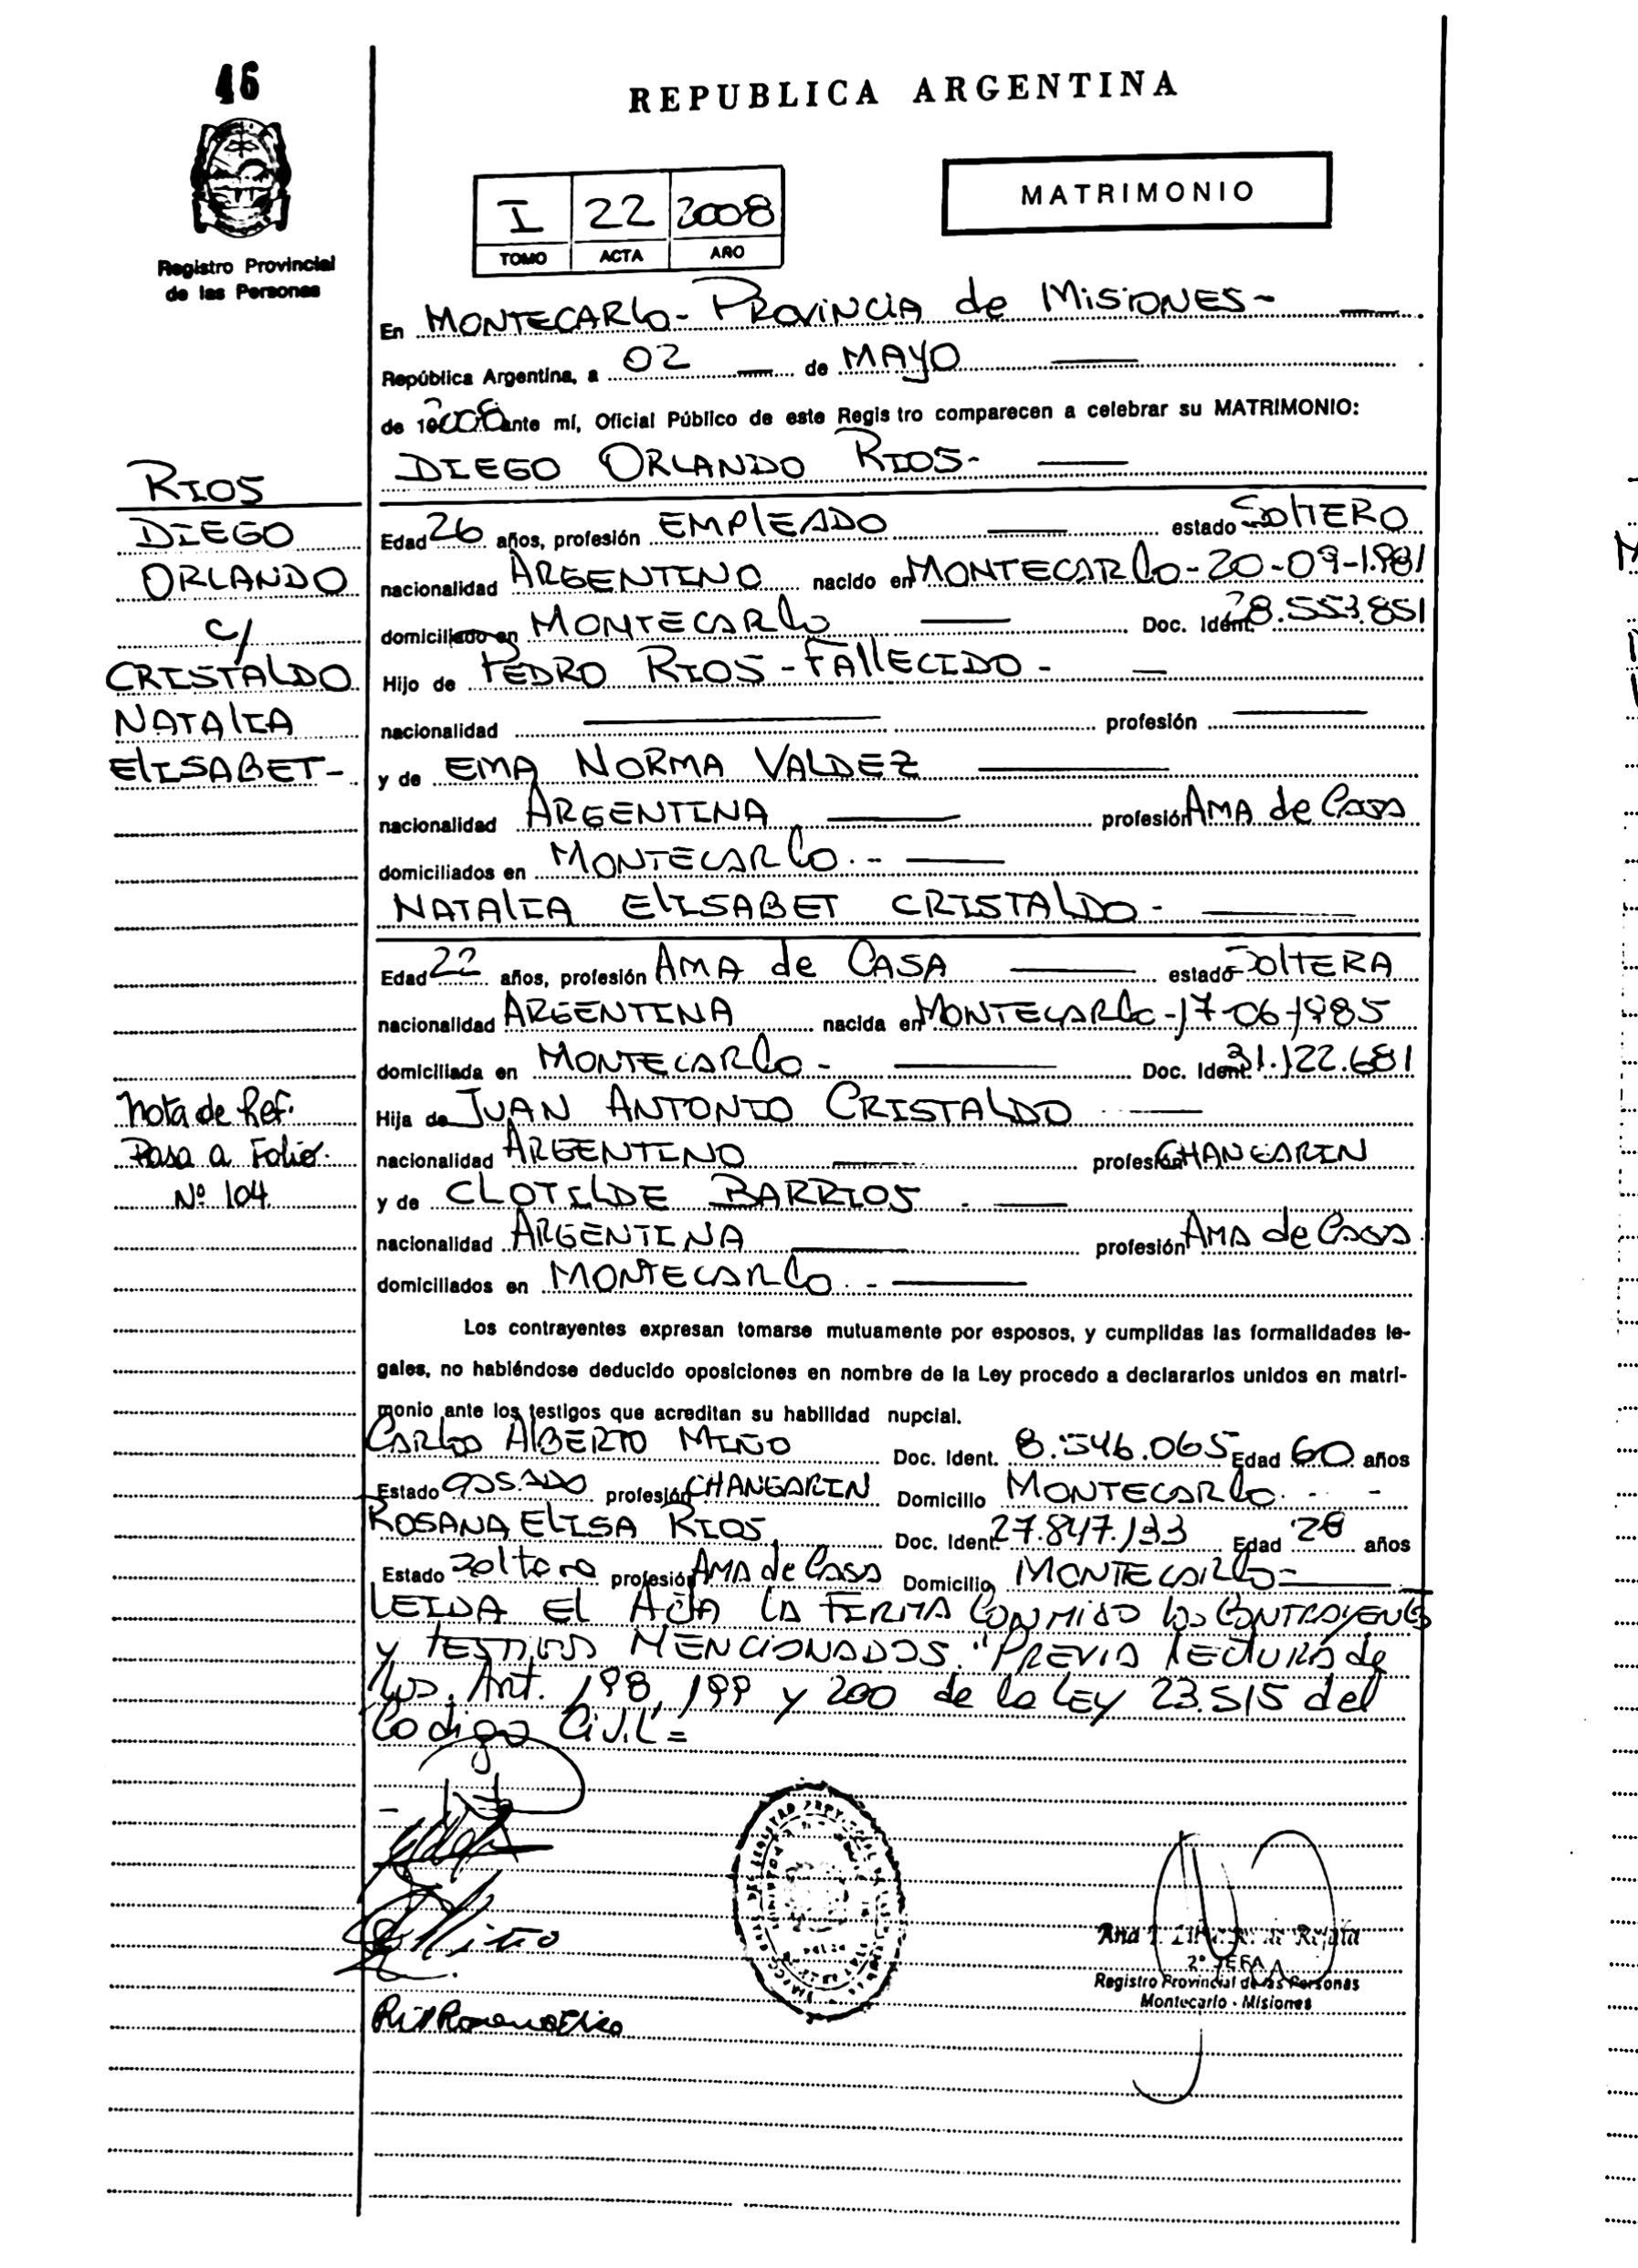 46
REPUBLICA ARGENTINA
MATRIMONIO
I 22 2008
TOMO ACTA AÑO
Registro Provincial
de las Personas
En MONTECARLO - PROVINCIA de MISIONES -
República Argentina, a 02 de MAYO
de 2008 ante mí, Oficial Público de este Regis tro comparecen a celebrar su MATRIMONIO:
DIEGO ORLANDO RIOS-
RIOS
DIEGO
ORLANDO
c/
CRISTALDO
NATALIA
ELISABET-
Edad 26 años, profesión EMPLEADO estado SOLTERO
nacionalidad ARGENTINO nacido en MONTECARLO - 20-09-1.981
domiciliado en MONTECARLO Doc. Ident. 28.553.851
Hijo de PEDRO RIOS - FALLECIDO -
nacionalidad profesión
y de EMA NORMA VALDEZ
nacionalidad ARGENTINA profesión AMA de CASA
domiciliados en MONTECARLO.-
NATALIA ELISABET CRISTALDO -
Edad 22 años, profesión AMA de CASA estado SOLTERA
nacionalidad ARGENTINA nacida en MONTECARLO - 17-06-1985
domiciliada en MONTECARLO - Doc. Ident. 31.122.681
Hija de JUAN ANTONIO CRISTALDO
nacionalidad ARGENTINO profesión CHANGARIN
y de CLOTILDE BARRIOS
nacionalidad ARGENTINA profesión AMA de CASA
domiciliados en MONTECARLO.-
Nota de Ref.
Pasa a Folio.
Nº 104.
Los contrayentes expresan tomarse mutuamente por esposos, y cumplidas las formalidades le-
gales, no habiéndose deducido oposiciones en nombre de la Ley procedo a declararlos unidos en matri-
monio ante los testigos que acreditan su habilidad nupcial.
CARLOS ALBERTO MIÑO Doc. Ident. 8.546.065 Edad 60 años
Estado CASADO profesión CHANGARIN Domicilio MONTECARLO. -
ROSANA ELISA RIOS Doc. Ident. 27.847.133 Edad 28 años
Estado soltera profesión AMA de CASA Domicilio MONTECARLO-
LEIDA EL ACTA LA FIRMA CONMIGO LOS CONTRAYENTES
y TESTIGOS MENCIONADOS. "PREVIA LECTURA de
LOS. Art. 198, 199 y 200 de la LEY 23.515 del
Codigo CiviL"=
Miño
Rios Rosana Elisa
Ana
2º JEFA
Registro Provincial de las Personas
Montecarlo - Misiones